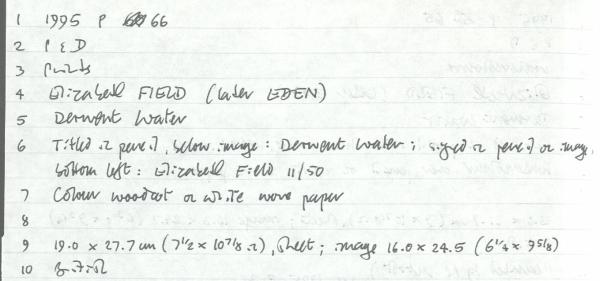 1 1995 P 66
2 P & D
3 Prints
4 Elizabeth FIELD (later EDEN)
5 Derwent Water
6 Titled in pencil, below image: Derwent Water; signed in pencil on image,
bottom left: Elizabeth Field 11/50
7 Colour woodcut on white wove paper
8
9 19.0 x 27.7 cm (7 1/2 x 10 7/8 in), sheet; image 16.0 x 24.5 (6 1/4 x 9 5/8)
10 British